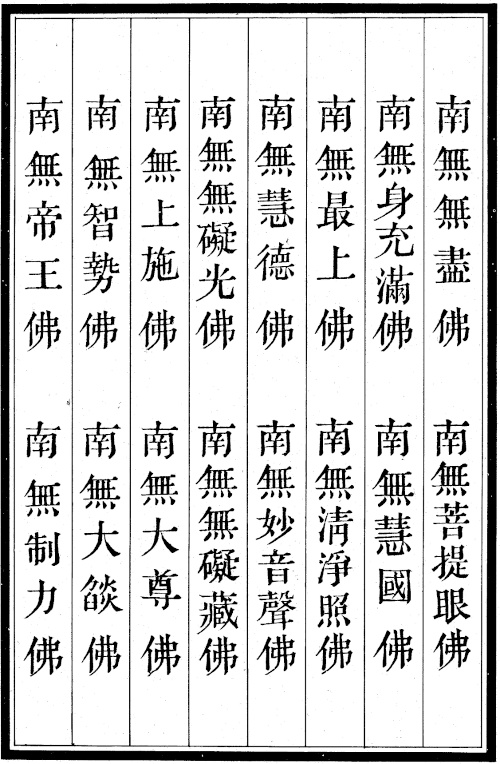 南無無盡佛　南無菩提眼佛
南無身充滿佛　南無慧國佛
南無最上佛　南無清淨照佛
南無慧德佛　南無妙音聲佛
南無無礙光佛　南無無礙藏佛
南無上施佛　南無大尊佛
南無智勢佛　南無大燄佛
南無帝王佛　南無制力佛